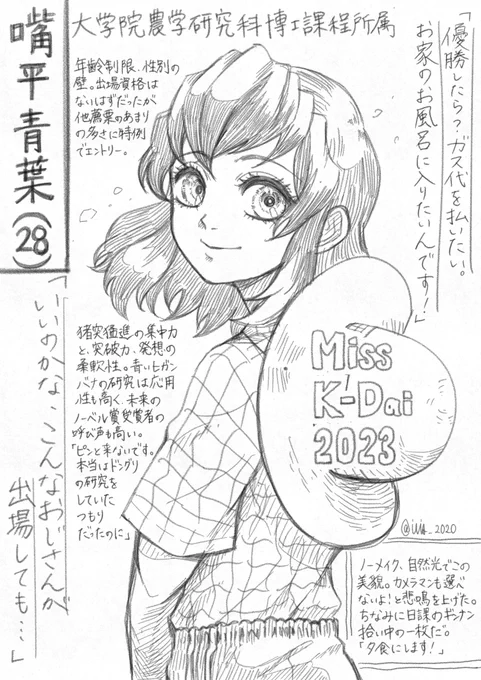 嘴平青葉(28)
大学院農学研究科博士課程所属
年齢制限、性別の
壁。出場資格は
ないはずだったが
他薦票のあまり
の多さに特例
でエントリー。
「優勝したら?ガス代を払いたい。
お家のお風呂に入りたいんです!」
猪突猛進の集中力
と、突破力、発想の
柔軟性。青いヒガン
バナの研究は応用
性も高く、未来の
ノーベル賞受賞者の
呼び声も高い。
「ピンと来ないです。
本当はドングリ
の研究を
していた
つもり
だったのに」
「いいのかな、こんなおじさんが
出場しても…」
Miss
K-Dai
2023
ノーメイク、自然光でこの
美貌。カメラマンも「選べ
ないよ!」と悲鳴を上げた。
ちなみに日課のギンナン
拾い中の一枚だ。
「夕食にします!」